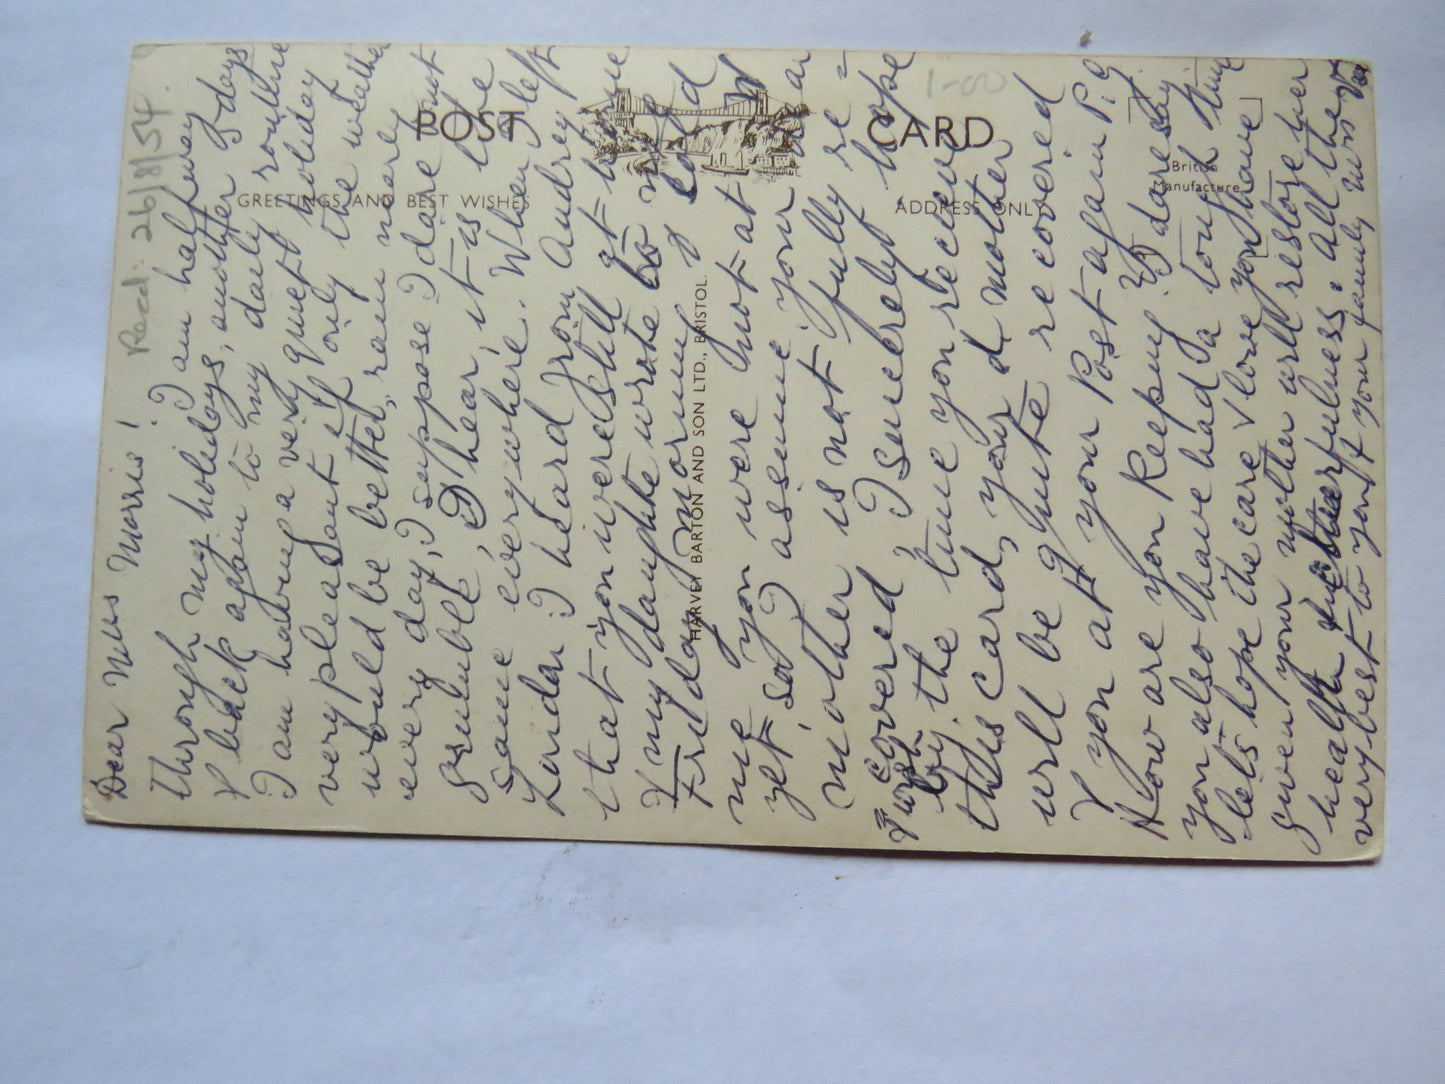 Recd. 26/8/54.
1-00
POST CARD
GREETINGS AND BEST WISHES
ADDRESS ONLY
British
Manufacture
HARVEY BARTON AND SON LTD., BRISTOL.
Dear Miss Morris!
I am halfway
through my holidays, another 9 days
& back again to my daily routine
I am having a very quiet holiday
very pleasant if only the weather
would be better, rain nearly
every day, I suppose I dare not
grumble, I hear, it is the
same everywhere. When I left
London I heard from Audrey
that you were still at home
& my daughter wrote to me
Friday morning & told
me you were not at
yet, so I assume your dear
mother is not fully re=
covered I sincerely hope
by the time you receive
this card, your d. mother
will be quite recovered
& you at your Post again P.O
How are you keeping? I daresay
you also have had a tough time
let's hope the care & love you have
given your mother will restore her
health & cheerfulness. All the
very best to you & your family